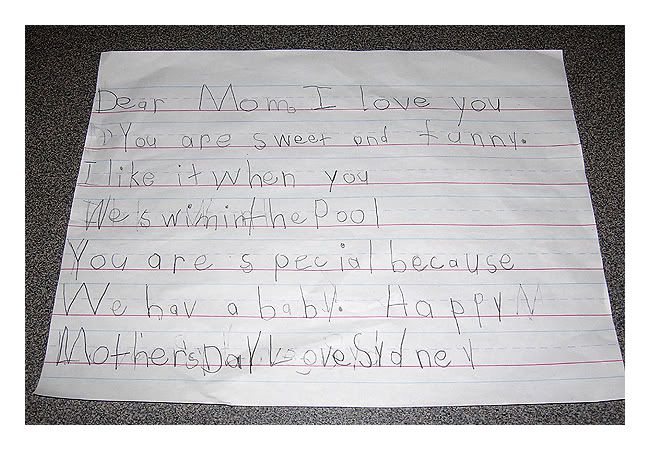 Dear Mom I love you
You are sweet and funny.
I like it when you
We swimin the Pool
You are special because
We hav a baby. Happy
Mothers Day Love, Sydney